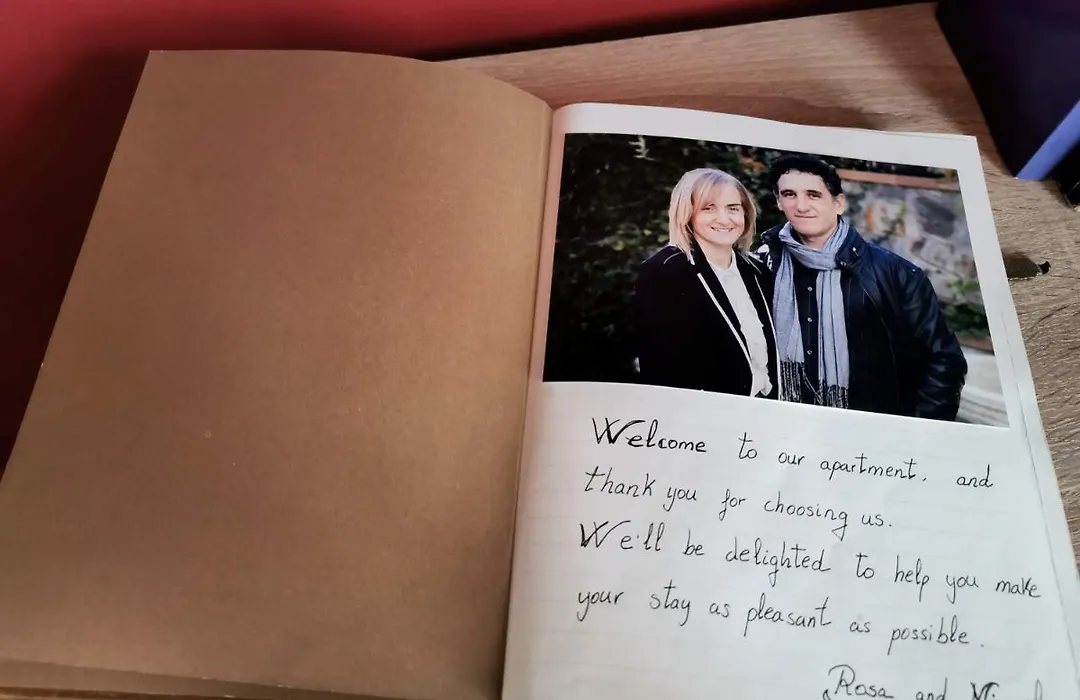 Welcome to our apartment, and
thank you for choosing us.
We'll be delighted to help you make
your stay as pleasant as possible.
Rosa and